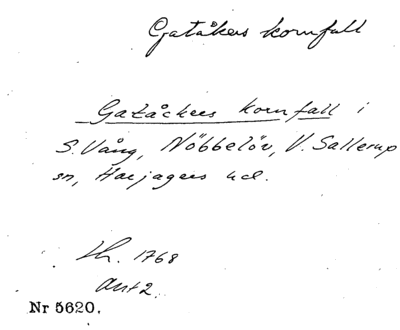 Gatåkers kornfall
Gatåckers kornfall i
S. Vång, Nöbbelöv, V. Sallerup
sn, Harjagers hd.
Lh. 1768
ant 2.
Nr 5620.